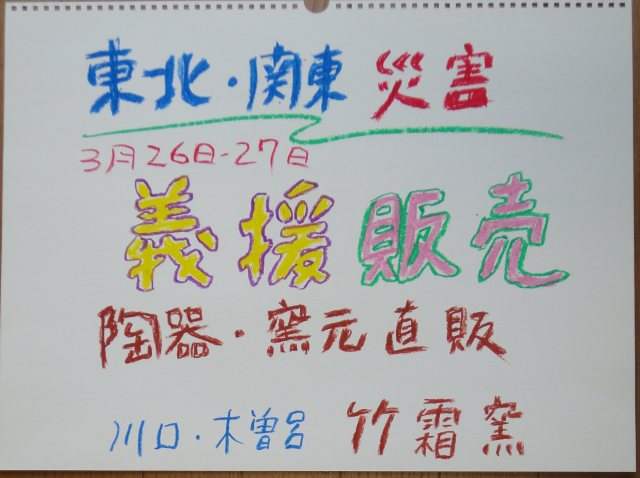 東北・関東 災害
3月26日-27日
義援販売
陶器・窯元直販
川口・木曽呂 竹霜窯